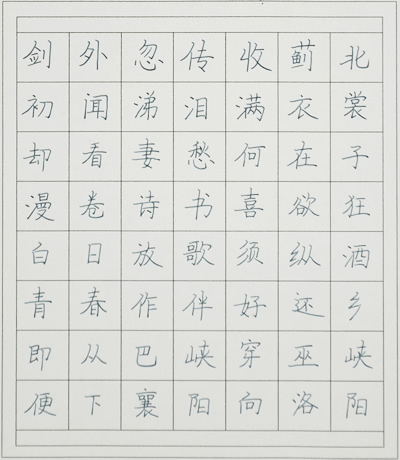 剑外忽传收蓟北
初闻涕泪满衣裳
却看妻愁何在子
漫卷诗书喜欲狂
白日放歌须纵酒
青春作伴好还乡
即从巴峡穿巫峡
便下襄阳向洛阳